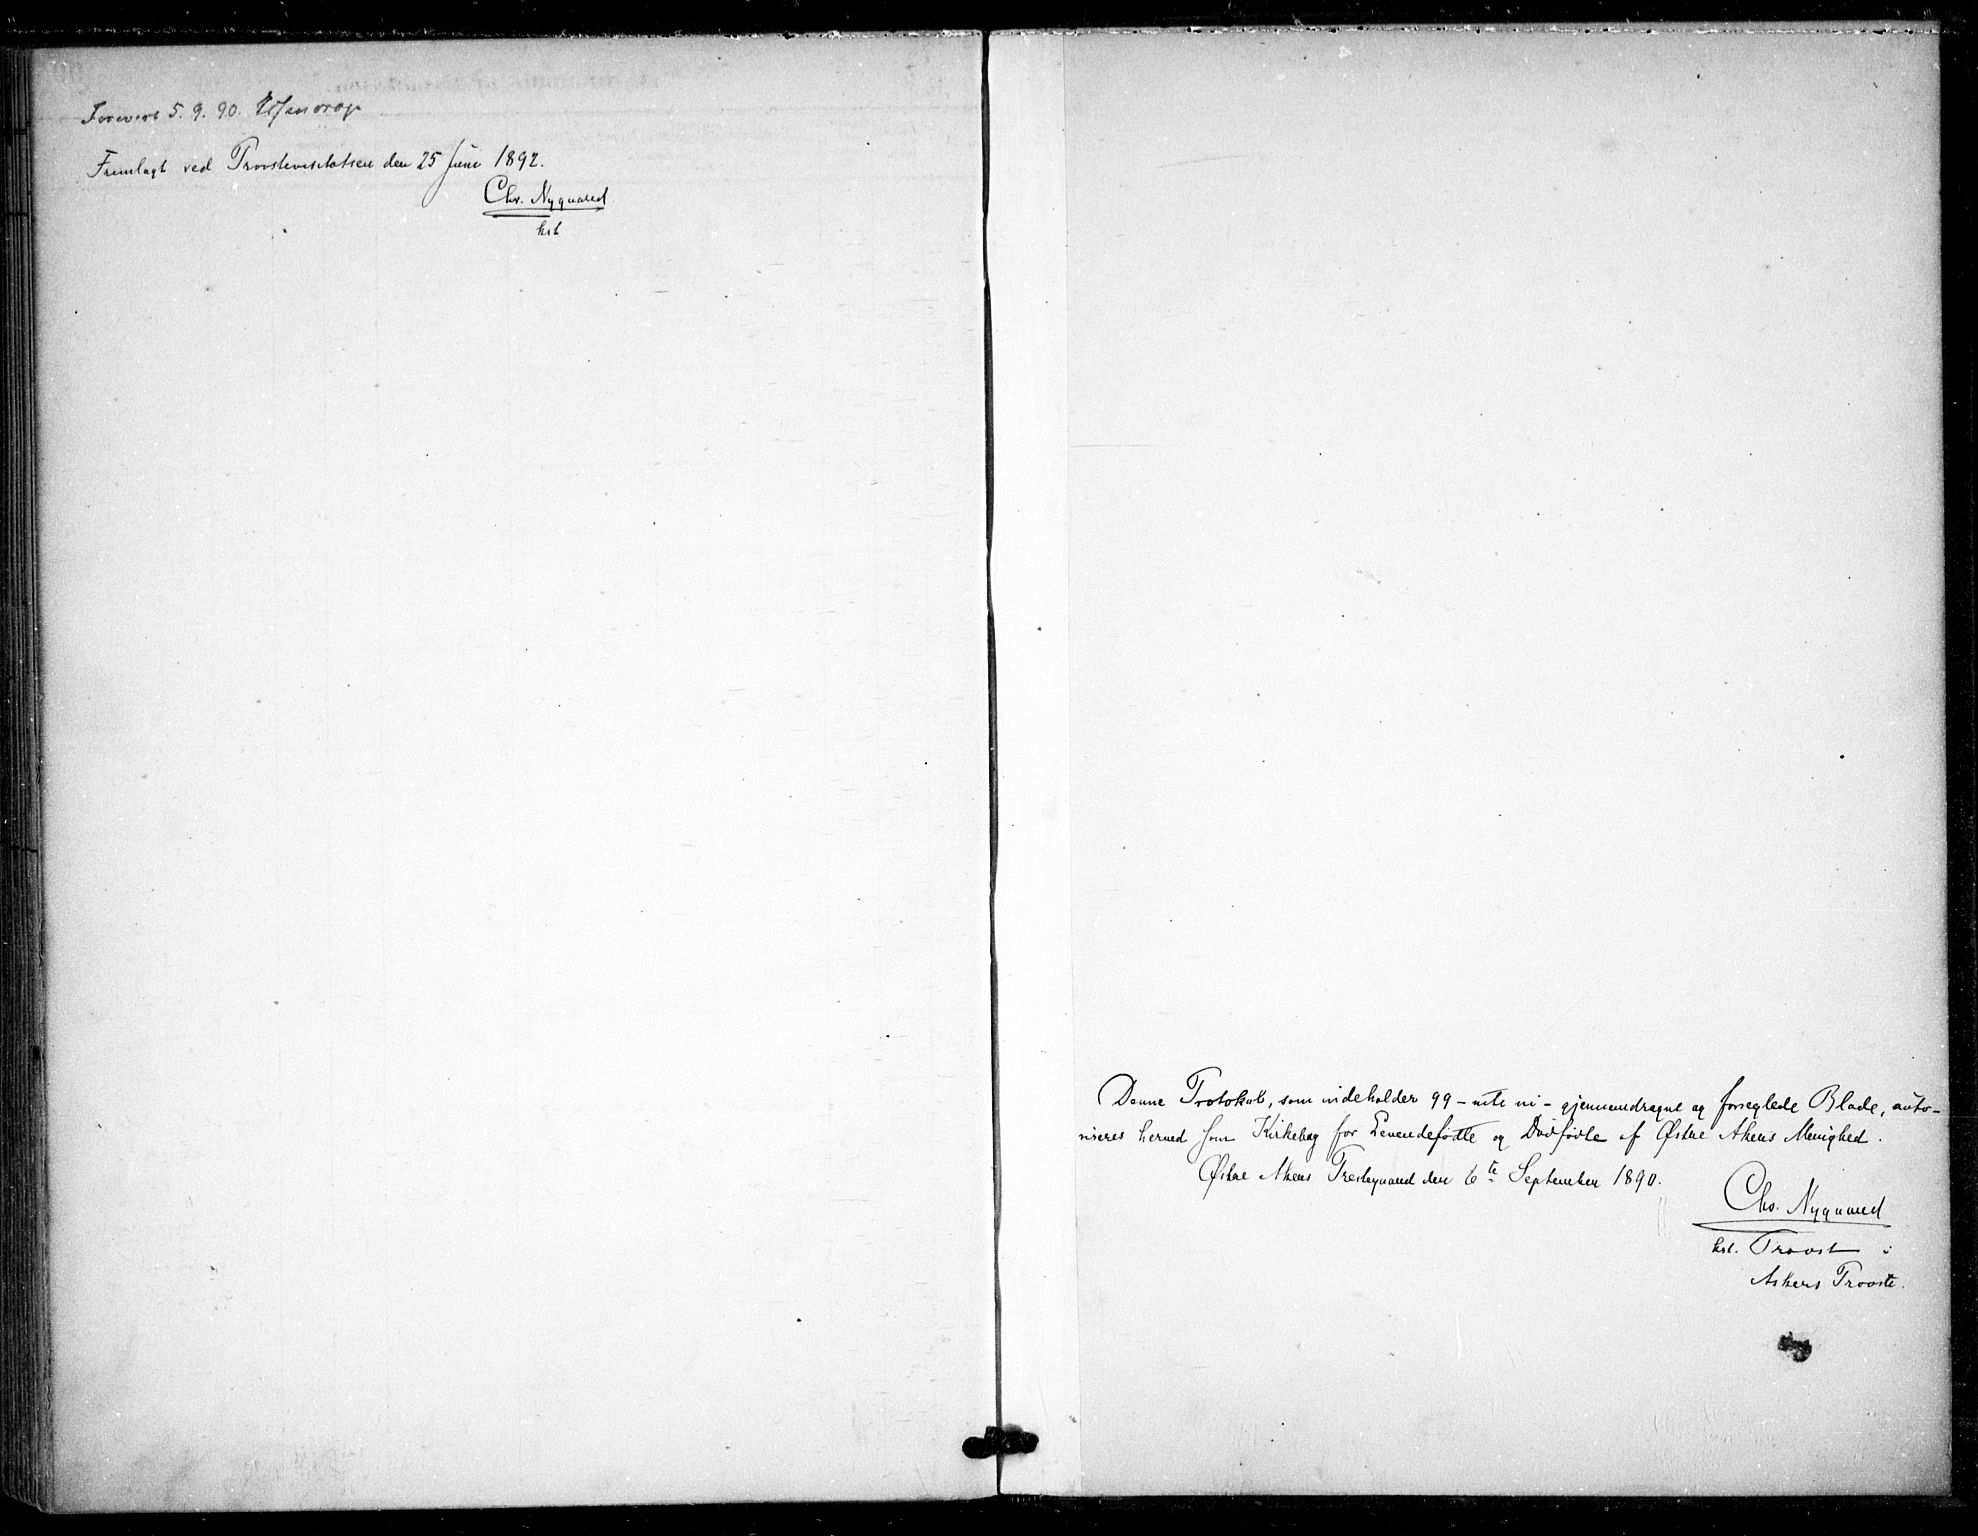 Forevist 5. 9. 90.
Fremlagt ved Provstevisitatsen den 25 Juni 1892.
Chr. Nyquared
kst
Denne Protokol, som indeholder 99 - niti ni - gjennemdragne og forseglede Blade, auto-
riseres herved som Kirkebog for Levendefødte og Dødfødte af Østre Akers Menighed.
Østre Akers Prestegaard den 6te September 1890.
Chr. Nyquared
kst. Provst i
Askers Provsti.